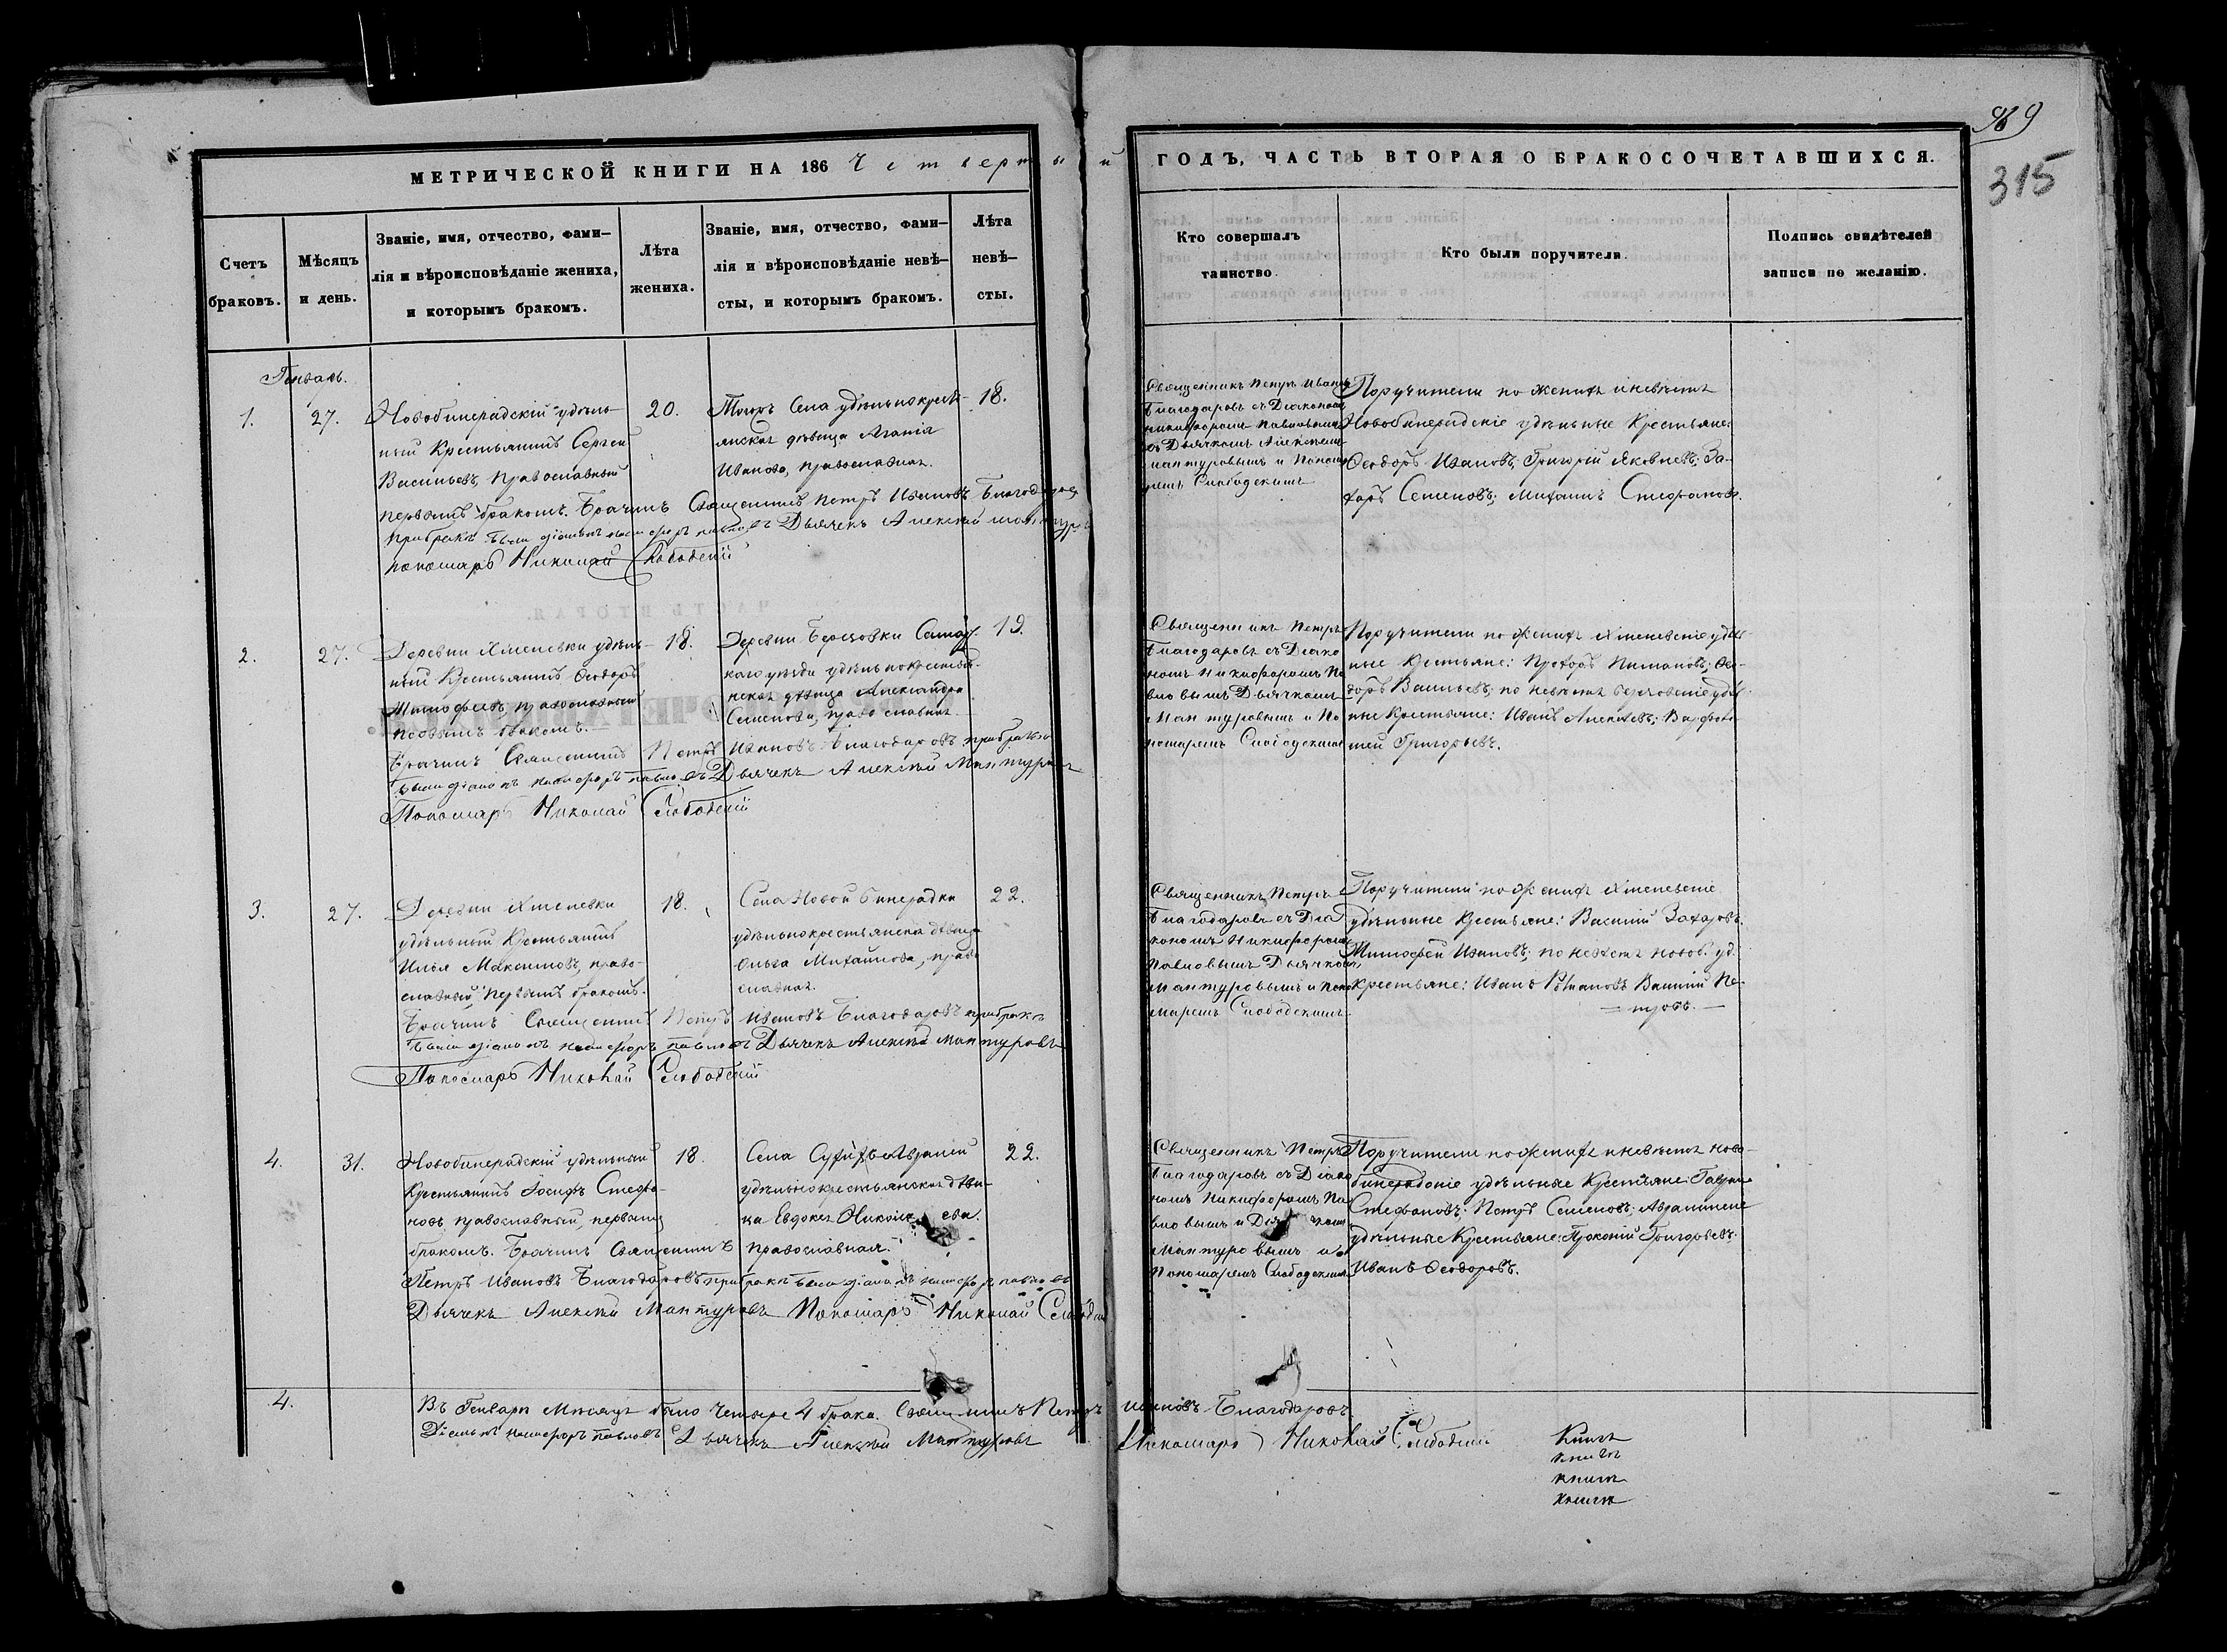 969
315
МЕТРИЧЕСКОЙ КНИГИ НА 186 Четвертый ГОДЪ, ЧАСТЬ ВТОРАЯ О БРАКОСОЧЕТАВШИХСЯ.
Счетъ браковъ.
Мѣсяцъ и день.
Званіе, имя, отчество, фами-
лія и вѣроисповѣданіе жениха,
и которымъ бракомъ.
Лѣта
жениха.
Званіе, имя, отчество, фами-
лія и вѣроисповѣданіе невѣ-
сты, и которымъ бракомъ.
Лѣта
невѣ-
сты.
Кто совершалъ
таинство.
Кто были поручители.
Подпись свидѣтелей
записи по желанію.
Генварь.
1.
27.
Новобинерадскій удѣль-
ный Крестьянинъ Сергей
Васильевъ, православный
первымъ бракомъ. Брачилъ Священникъ Петръ Ивановъ Благодаровъ
при бракѣ были діаконъ Никифоръ Павловъ Дьячекъ Алексѣй Мантуровъ
Пономарь Николай Слободскій
20.
Тогожъ Села удѣльнокресть-
янская дѣвица Агапія
Иванова, православная.
18.
Священникъ Петръ Ивановъ
Благодаровъ съ Діакономъ
Никифоромъ Павловымъ
съ Дьячкомъ Алексѣемъ
Мантуровымъ и Понома-
ремъ Слободскимъ
Поручители по женихѣ и невѣстѣ
Новобинерадскіе удѣльные Крестьяне:
Ѳеодоръ Ивановъ, Григорій Яковлевъ; За-
харъ Семеновъ; Михаилъ Стефановъ.
2.
27.
Деревни Хмелевки удѣль-
ный Крестьянинъ Ѳеодоръ
Тимофеевъ, православный
первымъ бракомъ.
Брачилъ Священникъ Петръ Ивановъ Благодаровъ при бракѣ
были діаконъ Никифоръ Павловъ Дьячекъ Алексѣй Мантуровъ
Пономарь Николай Слободскій
18.
Деревни Березовки Самар-
каго уѣзда удѣльнокрестьян-
ская дѣвица Александра
Семенова, православная.
19.
Священникъ Петръ
Благодаровъ съ Діако
номъ Никифоромъ Па
вловымъ Дьячкомъ
Мантуровымъ и По
номаремъ Слободскимъ
Поручители по женихѣ Хмелевскіе удѣль-
ные Крестьяне: Прохоръ Пимановъ, Ѳео-
доръ Васильевъ; по невѣстѣ березовскіе удѣль-
ные Крестьяне: Иванъ Алексѣевъ; Варфоло
мей Григорьевъ.
3.
27.
Деревни Хмелевки
удѣльный Крестьянинъ
Илья Максимовъ, право-
славный, первымъ бракомъ.
Брачилъ Священникъ Петръ Ивановъ Благодаровъ при бракѣ
были діаконъ Никифоръ Павловъ Дьячекъ Алексѣй Мантуровъ
Пономарь Николай Слободскій
18.
Села Новой Бинерадки
удѣльнокрестьянская дѣвица
Ольга Михайлова, право
славная.
22.
Священникъ Петръ
Благодаровъ съ Діа
кономъ Никифоромъ
Павловымъ Дьячкомъ
Мантуровымъ и Поно
маремъ Слободскимъ.
Поручители по женихѣ Хмелевскіе
удѣльные Крестьяне: Василій Захаровъ.
Тимофей Ивановъ; по невѣстѣ новоб. уд.
крестьяне: Иванъ Романовъ Василій Пе-
тровъ.
4.
31.
Новобинерадскій удѣльный
Крестьянинъ Іосифъ Стефа-
новъ, православный, первымъ
бракомъ. Брачилъ Священникъ
Петръ Ивановъ Благодаровъ при бракѣ были діаконъ Никифоръ Павловъ
Дьячекъ Алексѣй Мантуровъ Пономарь Николай Слободскій
18.
Села
удѣльнокрестьянская дѣви-
ца Евдокея Николаева.
православная.
22.
Священникъ Петръ
Благодаровъ съ Діако
номъ Никифоромъ Па
вловымъ и Дьячкомъ
Мантуровымъ и
Пономаремъ Слободскимъ
Поручители по женихѣ и невѣстѣ Ново-
бинерадскіе удѣльные Крестьяне: Гаврила
Стефановъ. Петръ Семеновъ;
удѣльные Крестьяне: Прокопій Григорьевъ.
Иванъ Ѳеодоровъ.
4.
Въ Генварѣ Мѣсяцѣ было Четыре 4 брака. Священникъ Петръ Ивановъ Благодаровъ.
Діаконъ Никифоръ Павловъ Дьячекъ Алексѣй Мантуровъ Пономарь Николай Слободскій
Книга
книга
книга
книга